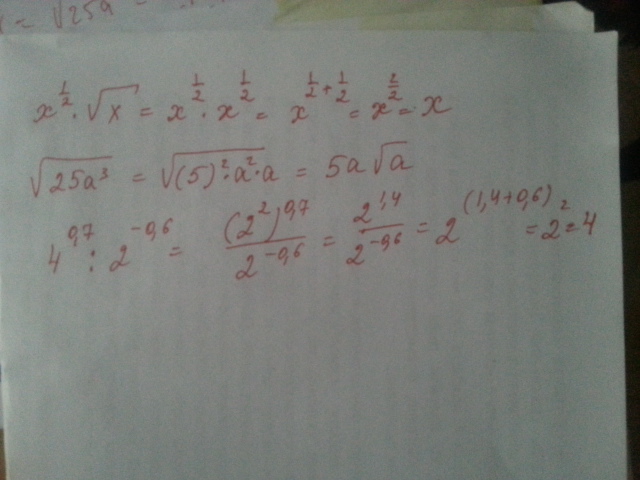 x = √25a
x^{1/2} · √x = x^{1/2} · x^{1/2} = x^{1/2 + 1/2} = x^{2/2} = x
√25a³ = √(5)²·a²·a = 5a√a
4^{0,7} : 2^{-0,6} = (2²)^{0,7} / 2^{-0,6} = 2^{1,4} / 2^{-0,6} = 2^{(1,4+0,6)} = 2² = 4